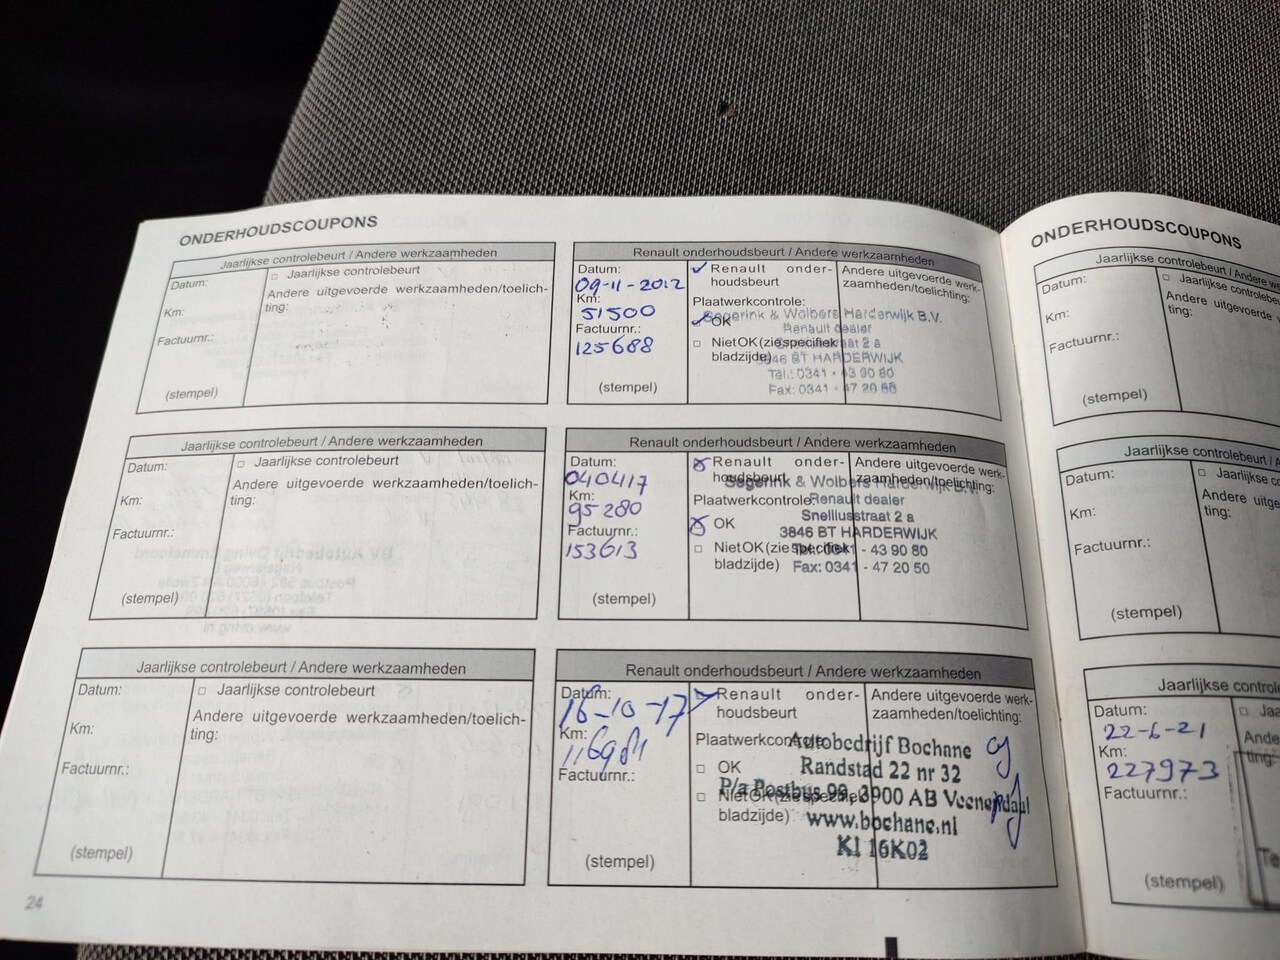 ONDERHOUDSCOUPONS
Jaarlijkse controlebeurt / Andere werkzaamheden
Datum:
□ Jaarlijkse controlebeurt
Andere uitgevoerde werkzaamheden/toelich-
ting:
Km:
Factuurnr.:
(stempel)
Renault onderhoudsbeurt / Andere werkzaamheden
Datum:
09-11-2012
Km:
51500
Factuurnr.:
125688
(stempel)
Renault onder-
houdsbeurt
Plaatwerkcontrole:
OK
□ Niet OK (zie specifiek
bladzijde)
Andere uitgevoerde werk-
zaamheden/toelichting:
Segerink & Wolbers Harderwijk B.V.
Renault dealer
2 a
3846 BT HARDERWIJK
Tel.: 0341 - 43 90 80
Fax: 0341 - 47 20 50
Jaarlijkse controlebeurt / Andere werkzaamheden
Datum:
□ Jaarlijkse controlebeurt
Andere uitgevoerde werkzaamheden/toelich-
ting:
Km:
Factuurnr.:
(stempel)
Renault onderhoudsbeurt / Andere werkzaamheden
Datum:
040417
Km:
95280
Factuurnr.:
153613
(stempel)
Renault onder-
houdsbeurt
Plaatwerkcontrole
OK
□ Niet OK (zie specifiek
bladzijde)
Andere uitgevoerde werk-
zaamheden/toelichting:
Segerink & Wolbers Harderwijk B.V.
Renault dealer
Snelliusstraat 2 a
3846 BT HARDERWIJK
Tel.: 0341 - 43 90 80
Fax: 0341 - 47 20 50
Jaarlijkse controlebeurt / Andere werkzaamheden
Datum:
□ Jaarlijkse controlebeurt
Andere uitgevoerde werkzaamheden/toelich-
ting:
Km:
Factuurnr.:
(stempel)
Renault onderhoudsbeurt / Andere werkzaamheden
Datum:
16-10-17
Km:
116981
Factuurnr.:
(stempel)
Renault onder-
houdsbeurt
Plaatwerkcontrole
□ OK
□ Niet OK (zie specifiek
bladzijde)
Andere uitgevoerde werk-
zaamheden/toelichting:
Autobedrijf Bochane
Randstad 22 nr 32
P/a Postbus 99, 3900 AB Veenendaal
www.bochane.nl
KI 16K02
24
ONDERHOUDSCOUPONS
Jaarlijkse controlebeurt / Andere we
Datum:
□ Jaarlijkse controlebe
Andere uitgevoerde
ting:
Km:
Factuurnr.:
(stempel)
Jaarlijkse controlebeurt /
Datum:
□ Jaarlijkse c
Andere uitg
ting:
Km:
Factuurnr.:
(stempel)
Jaarlijkse control
Datum:
22-6-21
Km:
227973
Factuurnr.:
□ Jaa
Ande
ting:
(stempel)
Te